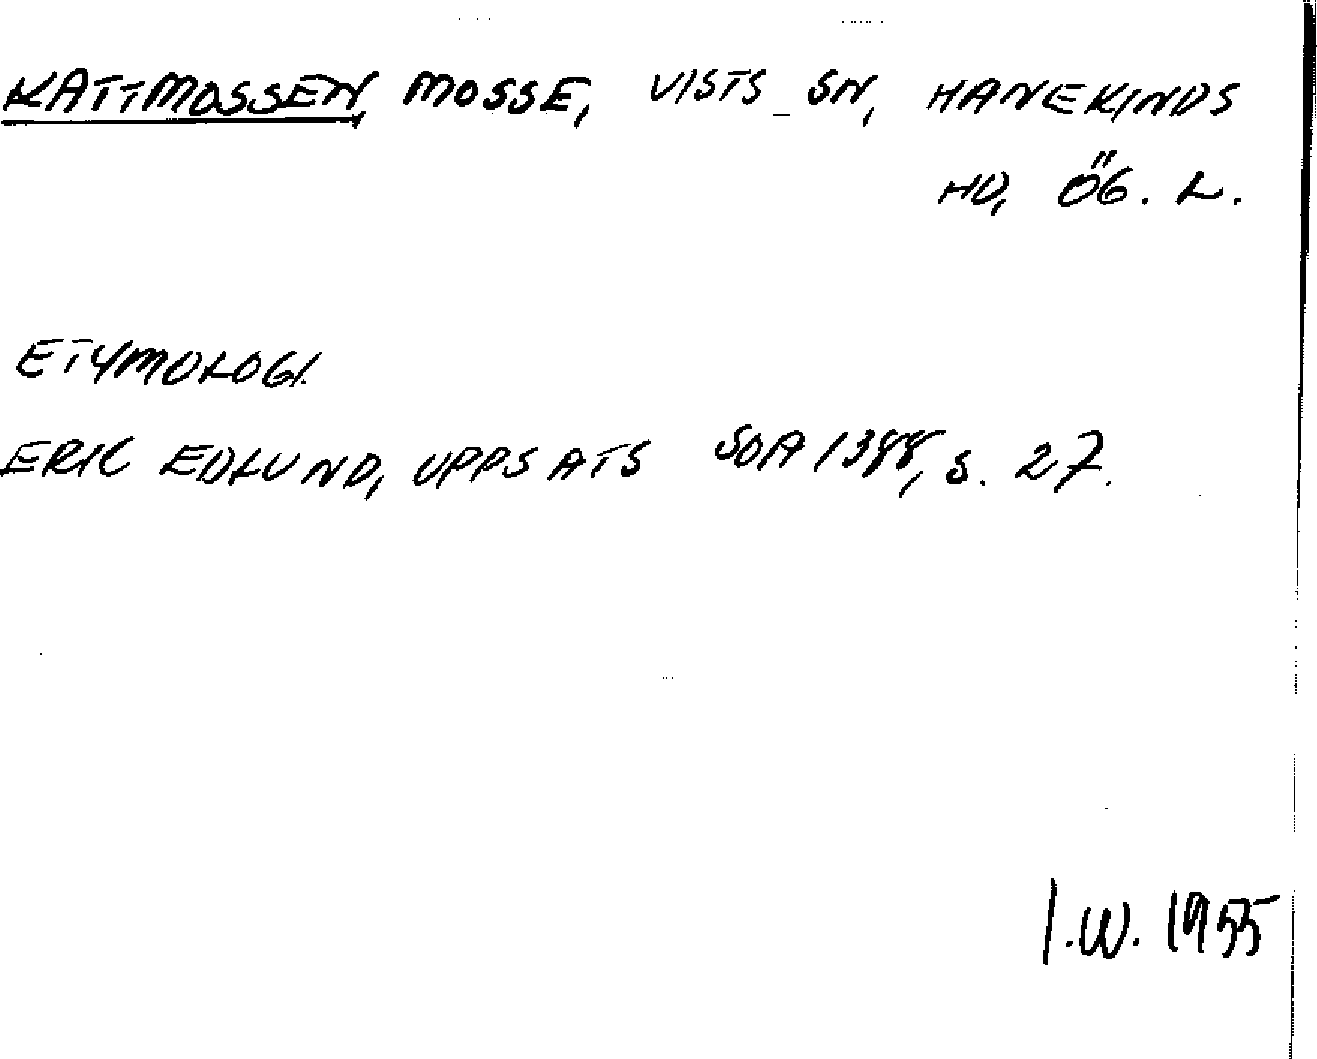 KATTMOSSEN, MOSSE, VISTS SN, HANEKINDS
HD, ÖG. L.
ETYMOLOGI.
ERIK EDLUND, UPPSATS SOA 1388, S. 27.
I.W. 1955